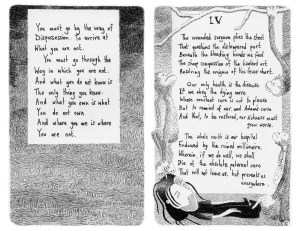 You must go by the way of
Dispossession to arrive at
What you are not.
You must go through the
Way in which you are not.
And what you do not know is
The only thing you know.
And what you own is what
You do not own
And where you are is where
You are not.
IV
The wounded surgeon plies the steel
That questions the distempered part
Beneath the bleeding hands we feel
The sharp compassion of the healer's art
Resolving the enigma of the fever chart.
Our only health is the disease
If we obey the dying nurse
Whose constant care is not to please
But to remind of our, and Adam's curse
And that, to be restored, our sickness must
grow worse.
The whole earth is our hospital
Endowed by the ruined millionaire,
Wherein, if we do well, we shall
Die of the absolute paternal care
That will not leave us, but prevents us
everywhere.